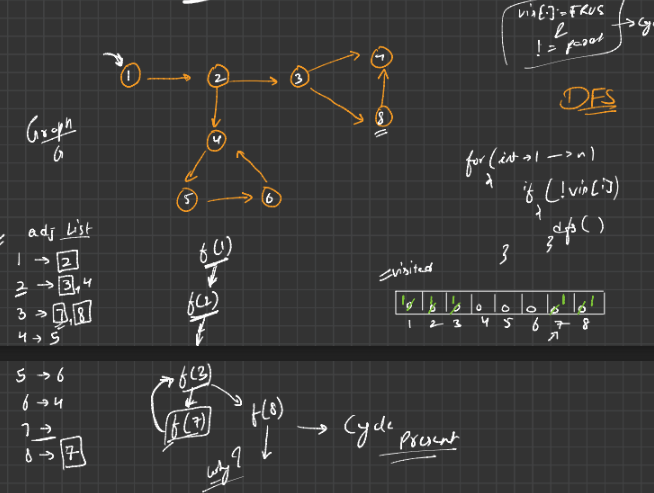 vis[i] = TRUE
&
!= parent
→ cy
1 → 2 → 3
7
8
4
5 → 6
DFS
Graph
G
for (int → 1 → n)
{
if (!vis[i])
{
dfs()
}
}
adj List
1 → 2
2 → 3, 4
3 → 7, 8
4 → 5
5 → 6
6 → 4
7 →
8 → 7
f(1)
f(2)
f(3)
f(7)
f(8)
why?
→ Cycle
Present
visited
1 0 1 0 1 0 0 0 0 0 1 0 1
1 2 3 4 5 6 7 8